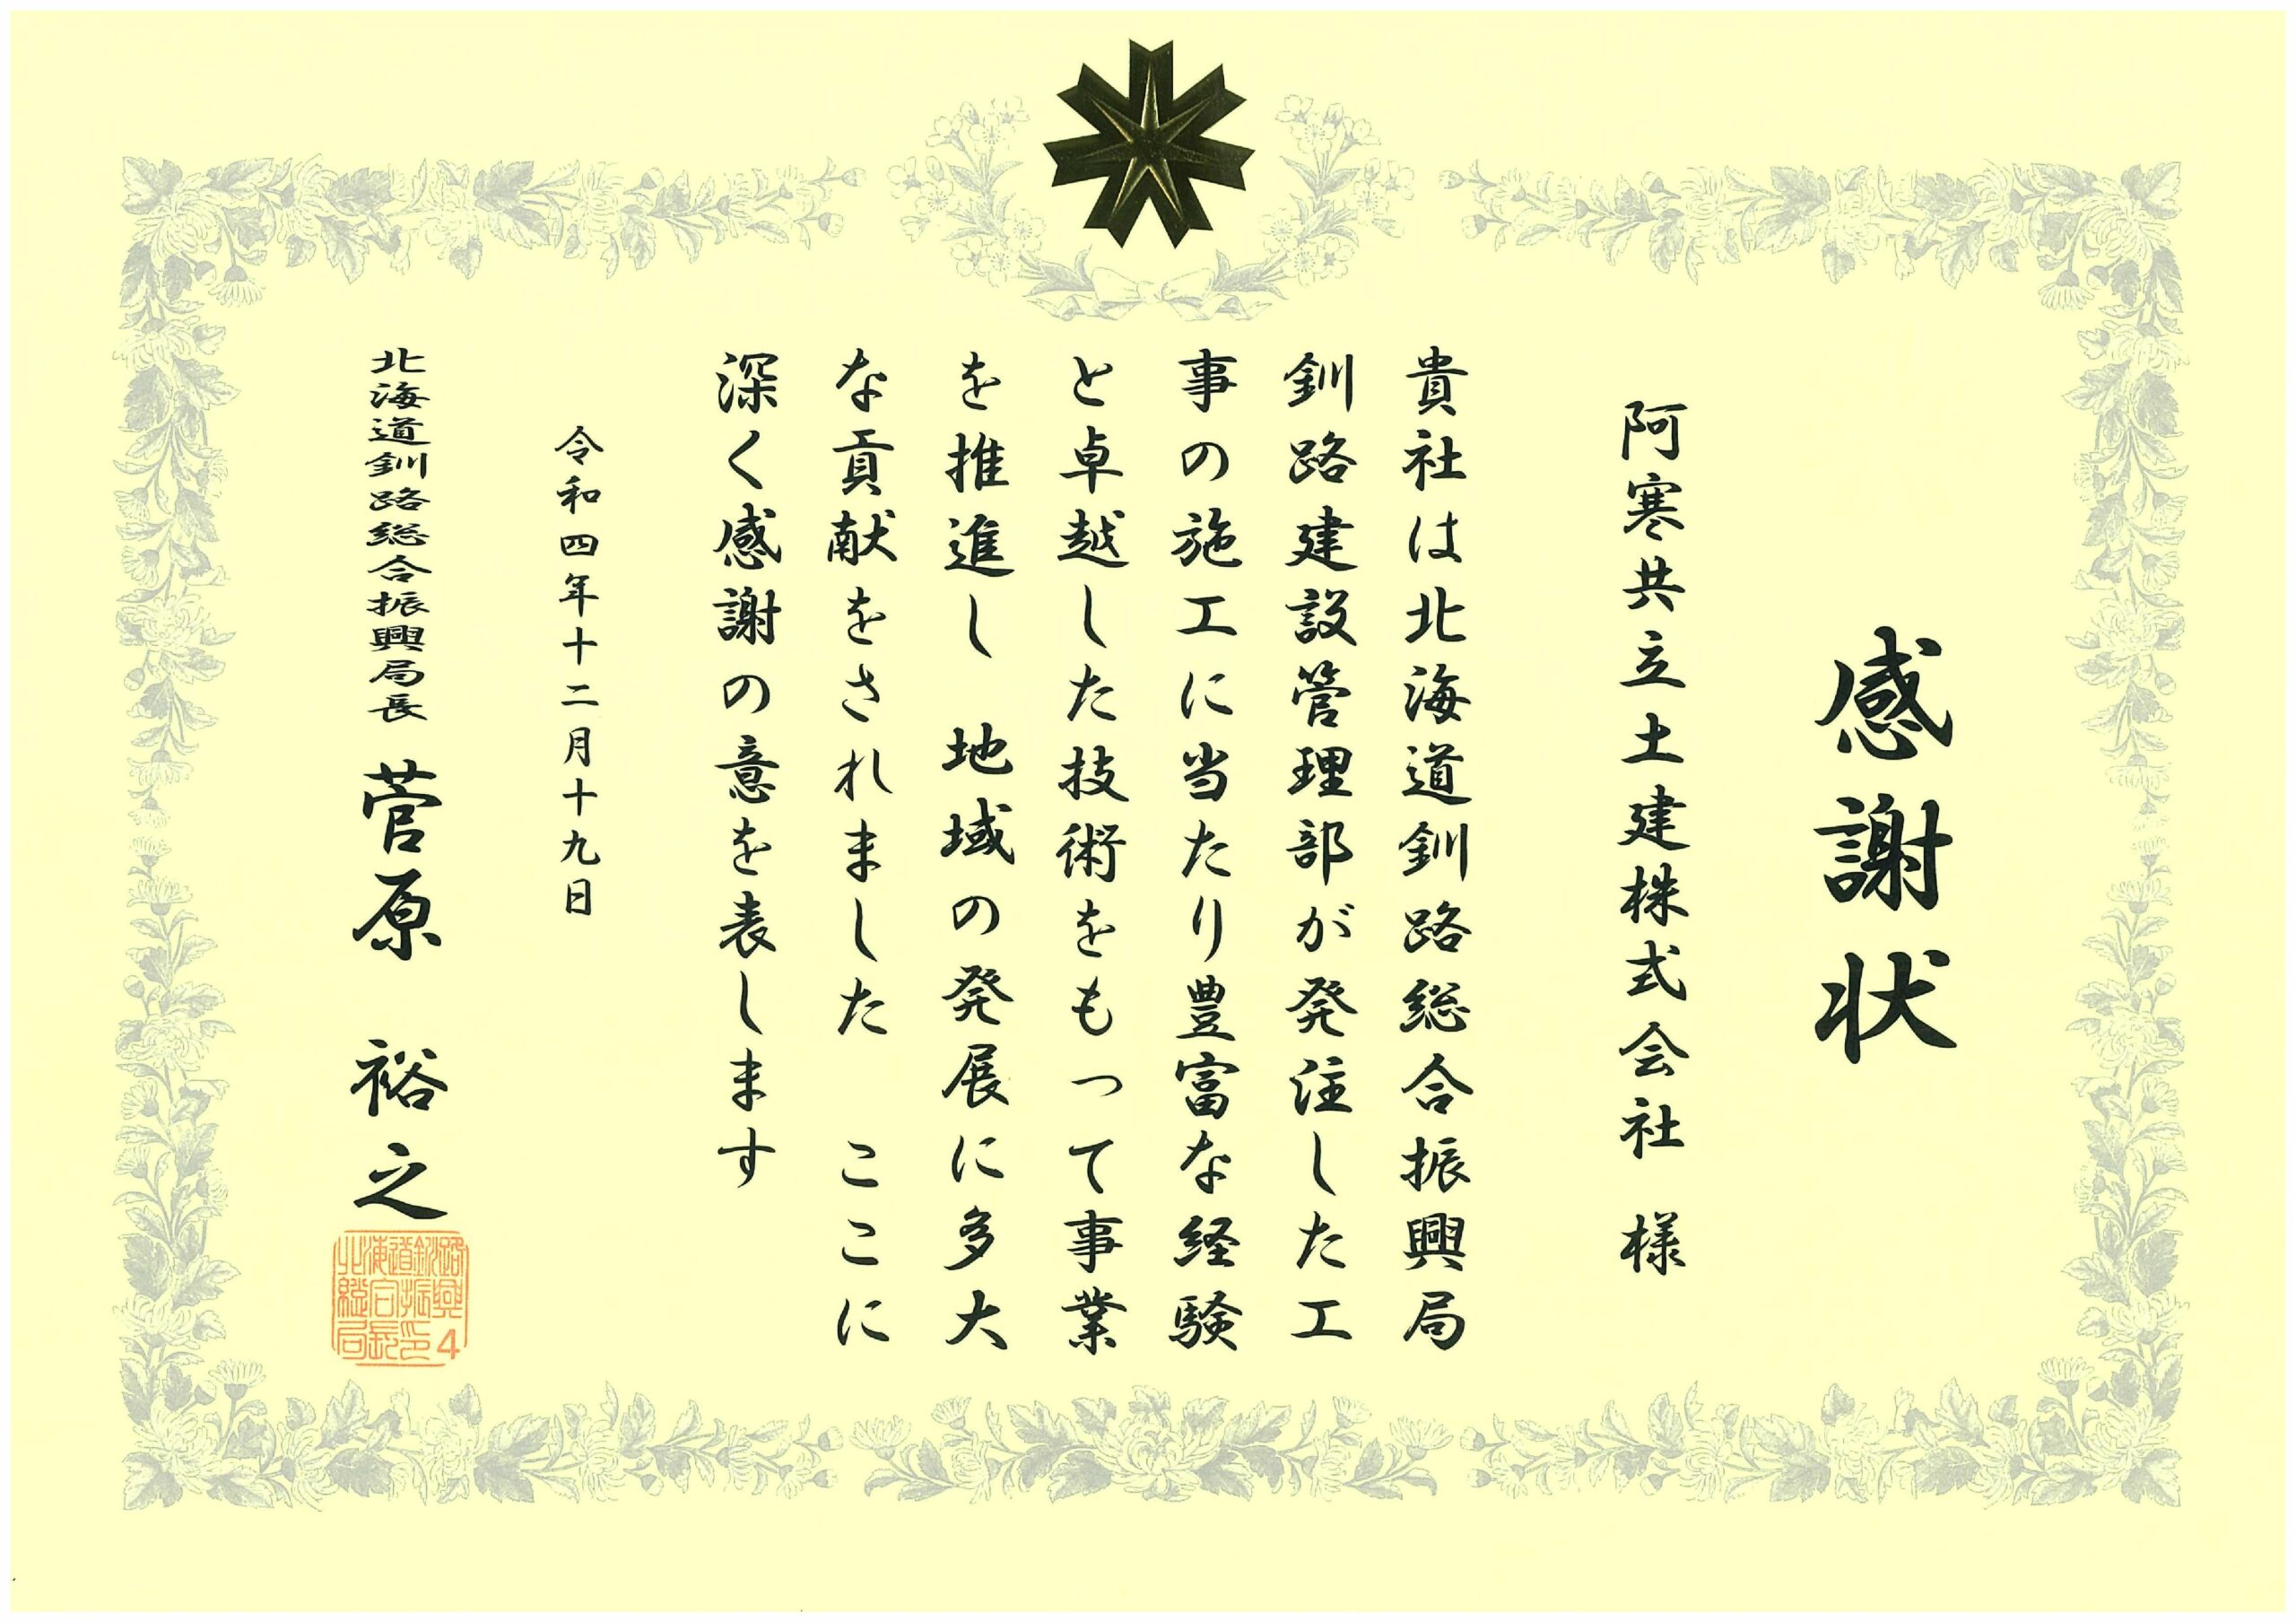 感謝状
阿寒共立土建株式会社 様
貴社は北海道釧路総合振興局
釧路建設管理部が発注した工
事の施工に当たり豊富な経験
と卓越した技術をもって事業
を推進し 地域の発展に多大
な貢献をされました ここに
深く感謝の意を表します
令和四年十二月十九日
北海道釧路総合振興局長 菅原 裕之
北海道釧路
総合振興
局長印4